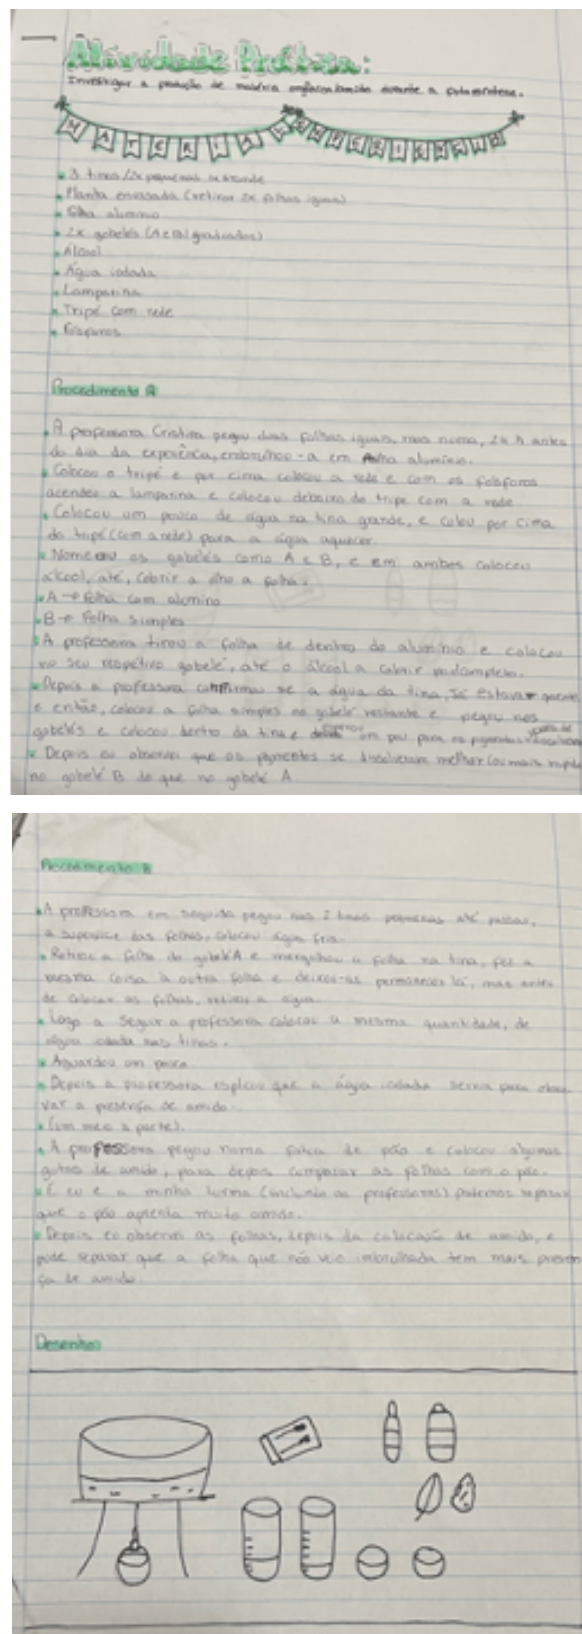 Atividade Prática:
Investigar a produção de matéria orgânica (amido) durante a fotossíntese.
MATERIAL EXPERIMENTAL
3 tinas / 2x pequenas 1x grande
Planta envasada (retirar 2x folhas iguais)
Folha alumínio
2x gobelés (A e B) graduados)
Álcool
Água iodada
Lamparina
Tripé com rede
Fósforos
Procedimento A
A professora Cristina pegou duas folhas iguais, mas numa, 24 h antes
do dia da experiência, embrulhou-a em folha alumínio.
Colocou o tripé e por cima colocou a rede e com os fósforos
acendeu a lamparina e colocou debaixo do tripe com a rede.
Colocou um pouco de água na tina grande, e colou por cima
do tripé (com a rede) para a água aquecer.
Nomeou os gobelés como A e B, e em ambos colocou
álcool, até, cobrir a olho a folha.
A → Folha com alomino
B → Folha simples
A professora tirou a folha de dentro do alumínio e colocou
no seu respétivo gobelé, até o álcool a cobrir por completo.
Depois a professora confirmou se a água da tina, já estava quente
e então, colocou a folha simples no gobelé restante e pegou nos
gobelés e colocou dentro da tina e esperou um pou para os pigmentos
Depois eu observei que os pigmentos se dissolveram melhor (ou mais rapido
no gobelé B do que no gobelé A.
Procedimento B
A professora em seguida pegou nas 2 tinas pequenas até passar,
a supervice das folhas, colocou água fria.
Retirou a folha do gobelé A e mergulhou a folha na tina, fez a
mesma coisa à outra folha e deixou-as permanecer lá, mas antes
de colocar as folhas, retirou a água.
Logo a seguir a professora colocou a mesma quantidade, de
água iodada nas tinas.
Aguardou um pouco
Depois a professora explicou que a água iodada servia para obser
var a presença de amido.
(Um meio à parte).
A professora pegou numa fatia de pão e colocou algumas
gotas de amido, para depois comparar as folhas com o pão.
E eu e a minha turma (incluindo as professoras) podemos reparar
que o pão apresenta muito amido.
Depois eu observei as folhas, depois da colocação de amido, e
pode reparar que a folha que não veio imbrulhada tem mais presen
ça de amido.
Desenho: